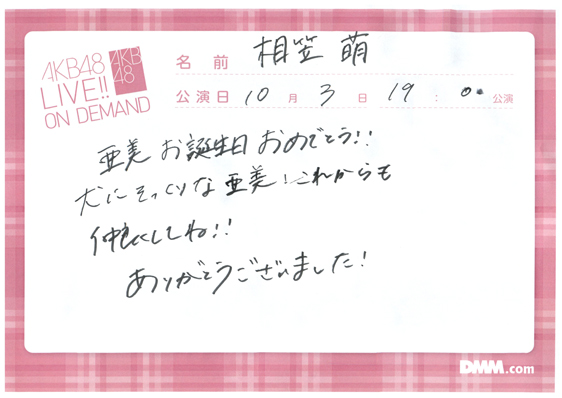 AKB48
LIVE!!
ON DEMAND
AKB
48
名前 相笠 萌
公演日 10月3日 19:00 公演
亜美 お誕生日 おめでとう!!
犬にそっくりな 亜美!これからも
仲良くしてね!!
ありがとうございました!
DMM.com